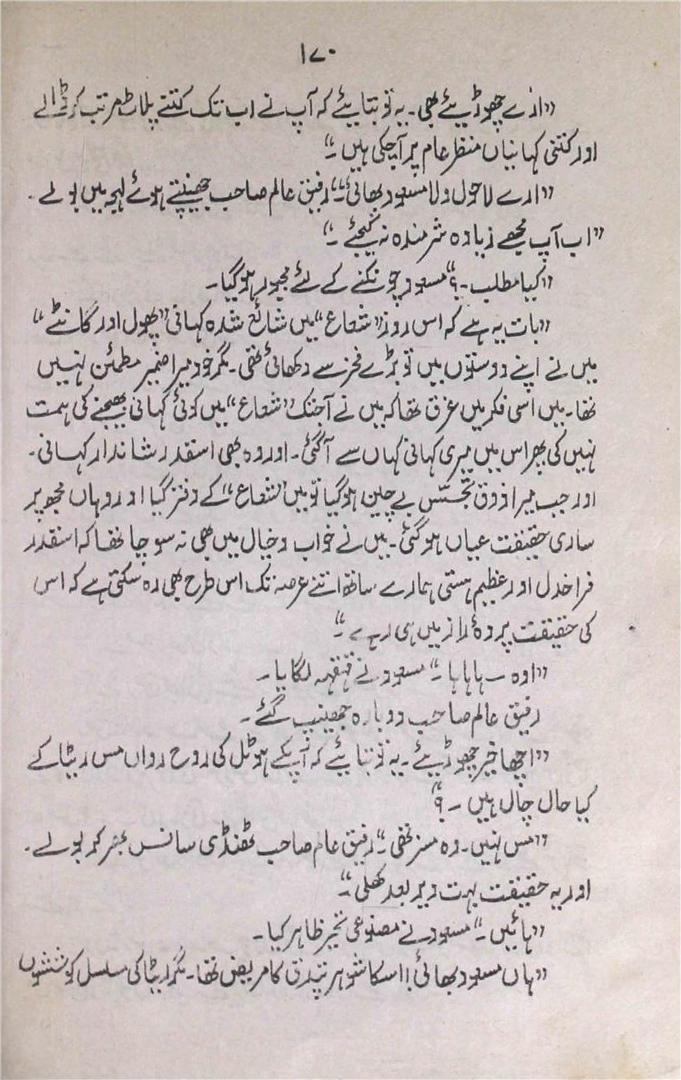 ۱۷۰
”ارے چھوڑیئے بھی۔ یہ تو بتایئے کہ آپ نے اب تک کتنے پلاٹ مرتب کر ڈالے
اور کتنی کہانیاں منظر عام پر آچکی ہیں۔“
”ارے لاحول ولا مسعود بھائی۔“ رفیق عالم صاحب جھینپتے ہوئے لہجہ میں بولے۔
”اب آپ مجھے زیادہ شرمندہ نہ کیجئے۔“
”کیا مطلب۔؟“ مسعود چونکنے کے لئے مجبور ہوگیا۔
”بات یہ ہے کہ اس روز ”شعاع“ میں شائع شدہ کہانی ”پھول اور کانٹے“
میں نے اپنے دوستوں میں تو بڑے فخر سے دکھائی تھی۔ مگر خود میرا ضمیر مطمئن نہیں
تھا۔ میں اسی فکر میں غرق تھا کہ میں نے آجتک ”شعاع“ میں کوئی کہانی بھیجنے کی ہمت
نہیں کی پھر اس میں میری کہانی کہاں سے آگئی۔ اور وہ بھی اسقدر شاندار کہانی۔
اور جب میرا ذوق تجسّس بے چین ہوگیا تو میں ”شعاع“ کے دفتر گیا اور وہاں مجھ پر
ساری حقیقت عیاں ہوگئی۔ میں نے خواب و خیال میں بھی نہ سوچا تھا کہ اسقدر
فراخدل اور عظیم ہستی ہمارے ساتھ اتنے عرصہ تک اس طرح بھی رہ سکتی ہے کہ اس
کی حقیقت پردۂ راز میں ہی رہے۔“
”اوہ۔ ہاہاہا۔“ مسعود نے قہقہہ لگایا۔
رفیق عالم صاحب دوبارہ جھینپ گئے۔
”اچھا خیر چھوڑیئے۔ یہ تو بتایئے کہ آپکے ہوٹل کی روح رواں مس ریٹا کے
کیا حال چال ہیں۔؟“
”مس نہیں۔ وہ مسز تھی۔“ رفیق عالم صاحب ٹھنڈی سانس بھر کر بولے۔
اور یہ حقیقت بہت دیر بعد کھلی۔“
”ہائیں۔“ مسعود نے مصنوعی تحیر ظاہر کیا۔
”ہاں مسعود بھائی! اسکا شوہر تپدق کا مریض تھا۔ مگر ریٹا کی مسلسل کوششوں